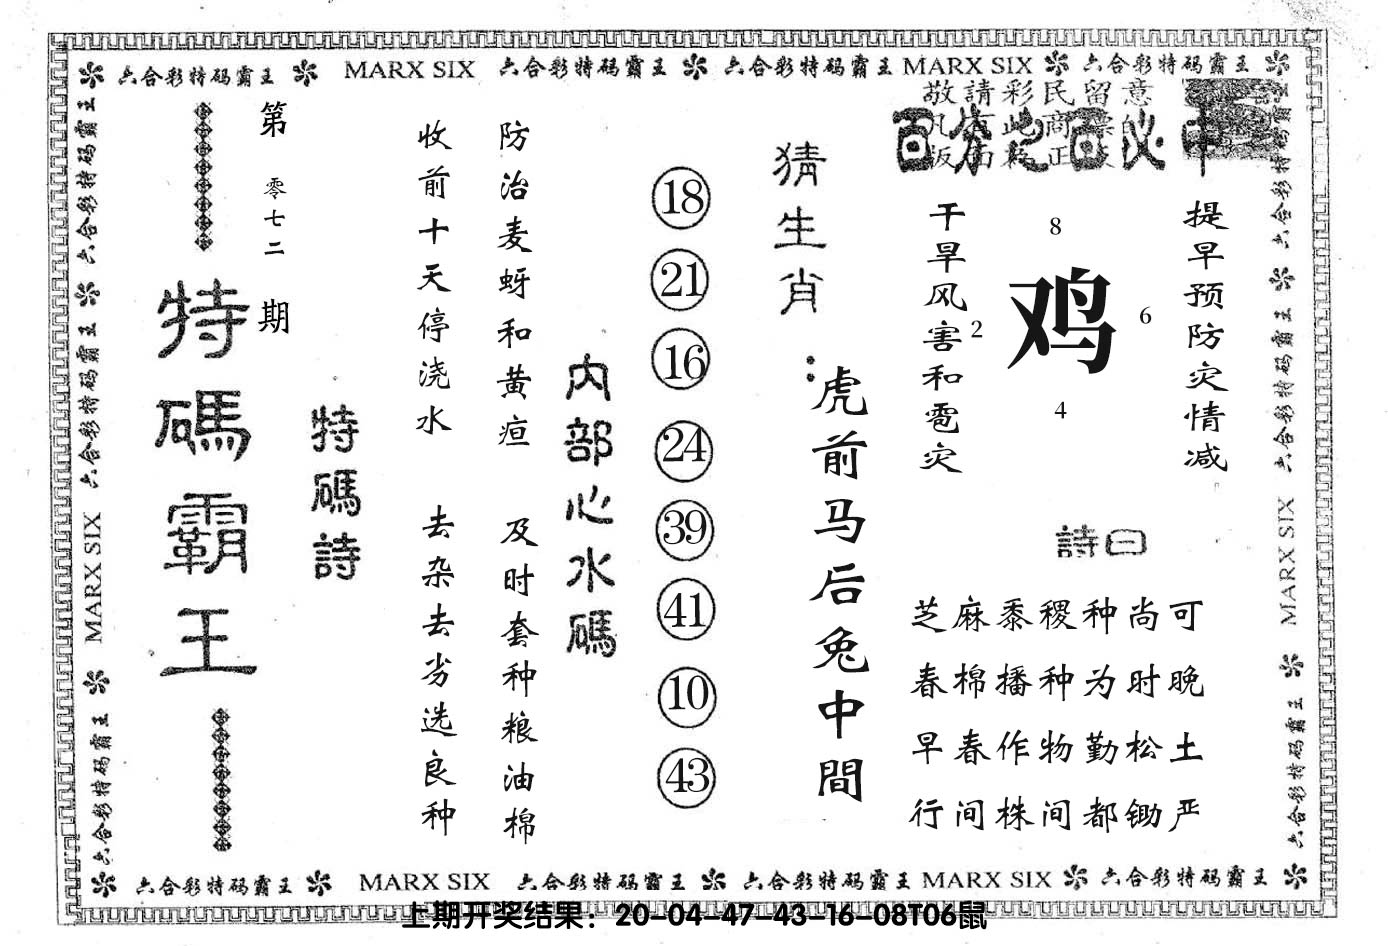 六合彩特码霸王 MARX SIX 六合彩特码霸王 六合彩特码霸王 MARX SIX 六合彩特码霸王
敬請彩民留意
百分之百必中
提早预防灾情减
干旱风害和雹灾
8
2
鸡
6
4
詩曰
芝麻黍稷种尚可
春棉播种为时晚
早春作物勤松土
行间株间都锄严
猜生肖：
虎前马后兔中間
18
21
16
24
39
41
10
43
内部心水碼
防治麦蚜和黄疸
及时套种粮油棉
收前十天停浇水
去杂去劣选良种
特碼詩
第零七二期
特碼霸王
六合彩特码霸王 六合彩特码霸王 MARX SIX 六合彩特码霸王
六合彩特码霸王 六合彩特码霸王 MARX SIX 六合彩特码霸王
六合彩特码霸王 MARX SIX 六合彩特码霸王 六合彩特码霸王 MARX SIX 六合彩特码霸王
上期开奖结果：20-04-47-43-16-08T06鼠